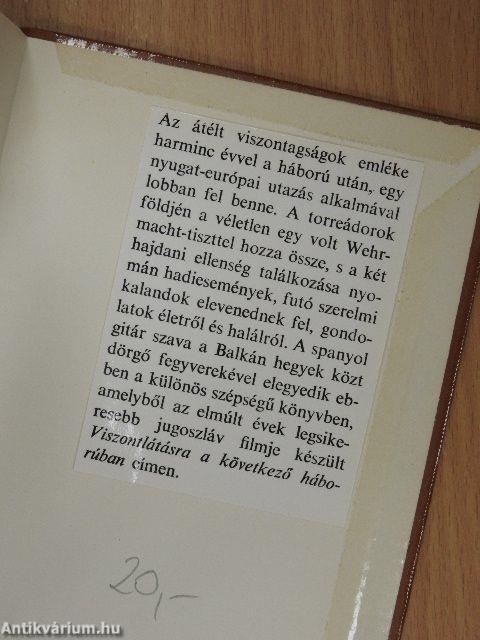 Az átélt viszontagságok emléke
harminc évvel a háború után, egy
nyugat-európai utazás alkalmával
lobban fel benne. A torreádorok
földjén a véletlen egy volt Wehr-
macht-tiszttel hozza össze, s a két
hajdani ellenség találkozása nyo-
mán hadiesemények, futó szerelmi
kalandok elevenednek fel, gondo-
latok életről és halálról. A spanyol
gitár szava a Balkán hegyek közt
dörgő fegyverekével elegyedik eb-
ben a különös szépségű könyvben,
amelyből az elmúlt évek legsike-
resebb jugoszláv filmje készült
Viszontlátásra a következő hábo-
rúban címen.
20,-
Antikvárium.hu